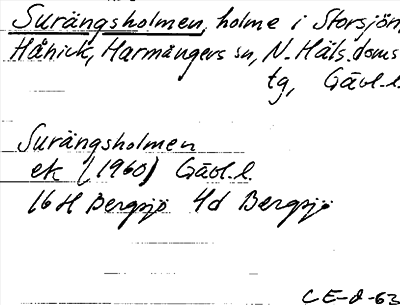 Surängsholmen, holme i Storsjön,
Hånick, Harmångers sn, N. Häls. doms
tg, Gävl. l.
Surängsholmen
ek (1960) Gävl. l.
16 H Bergsjö 4d Bergsjö
CE-d-63